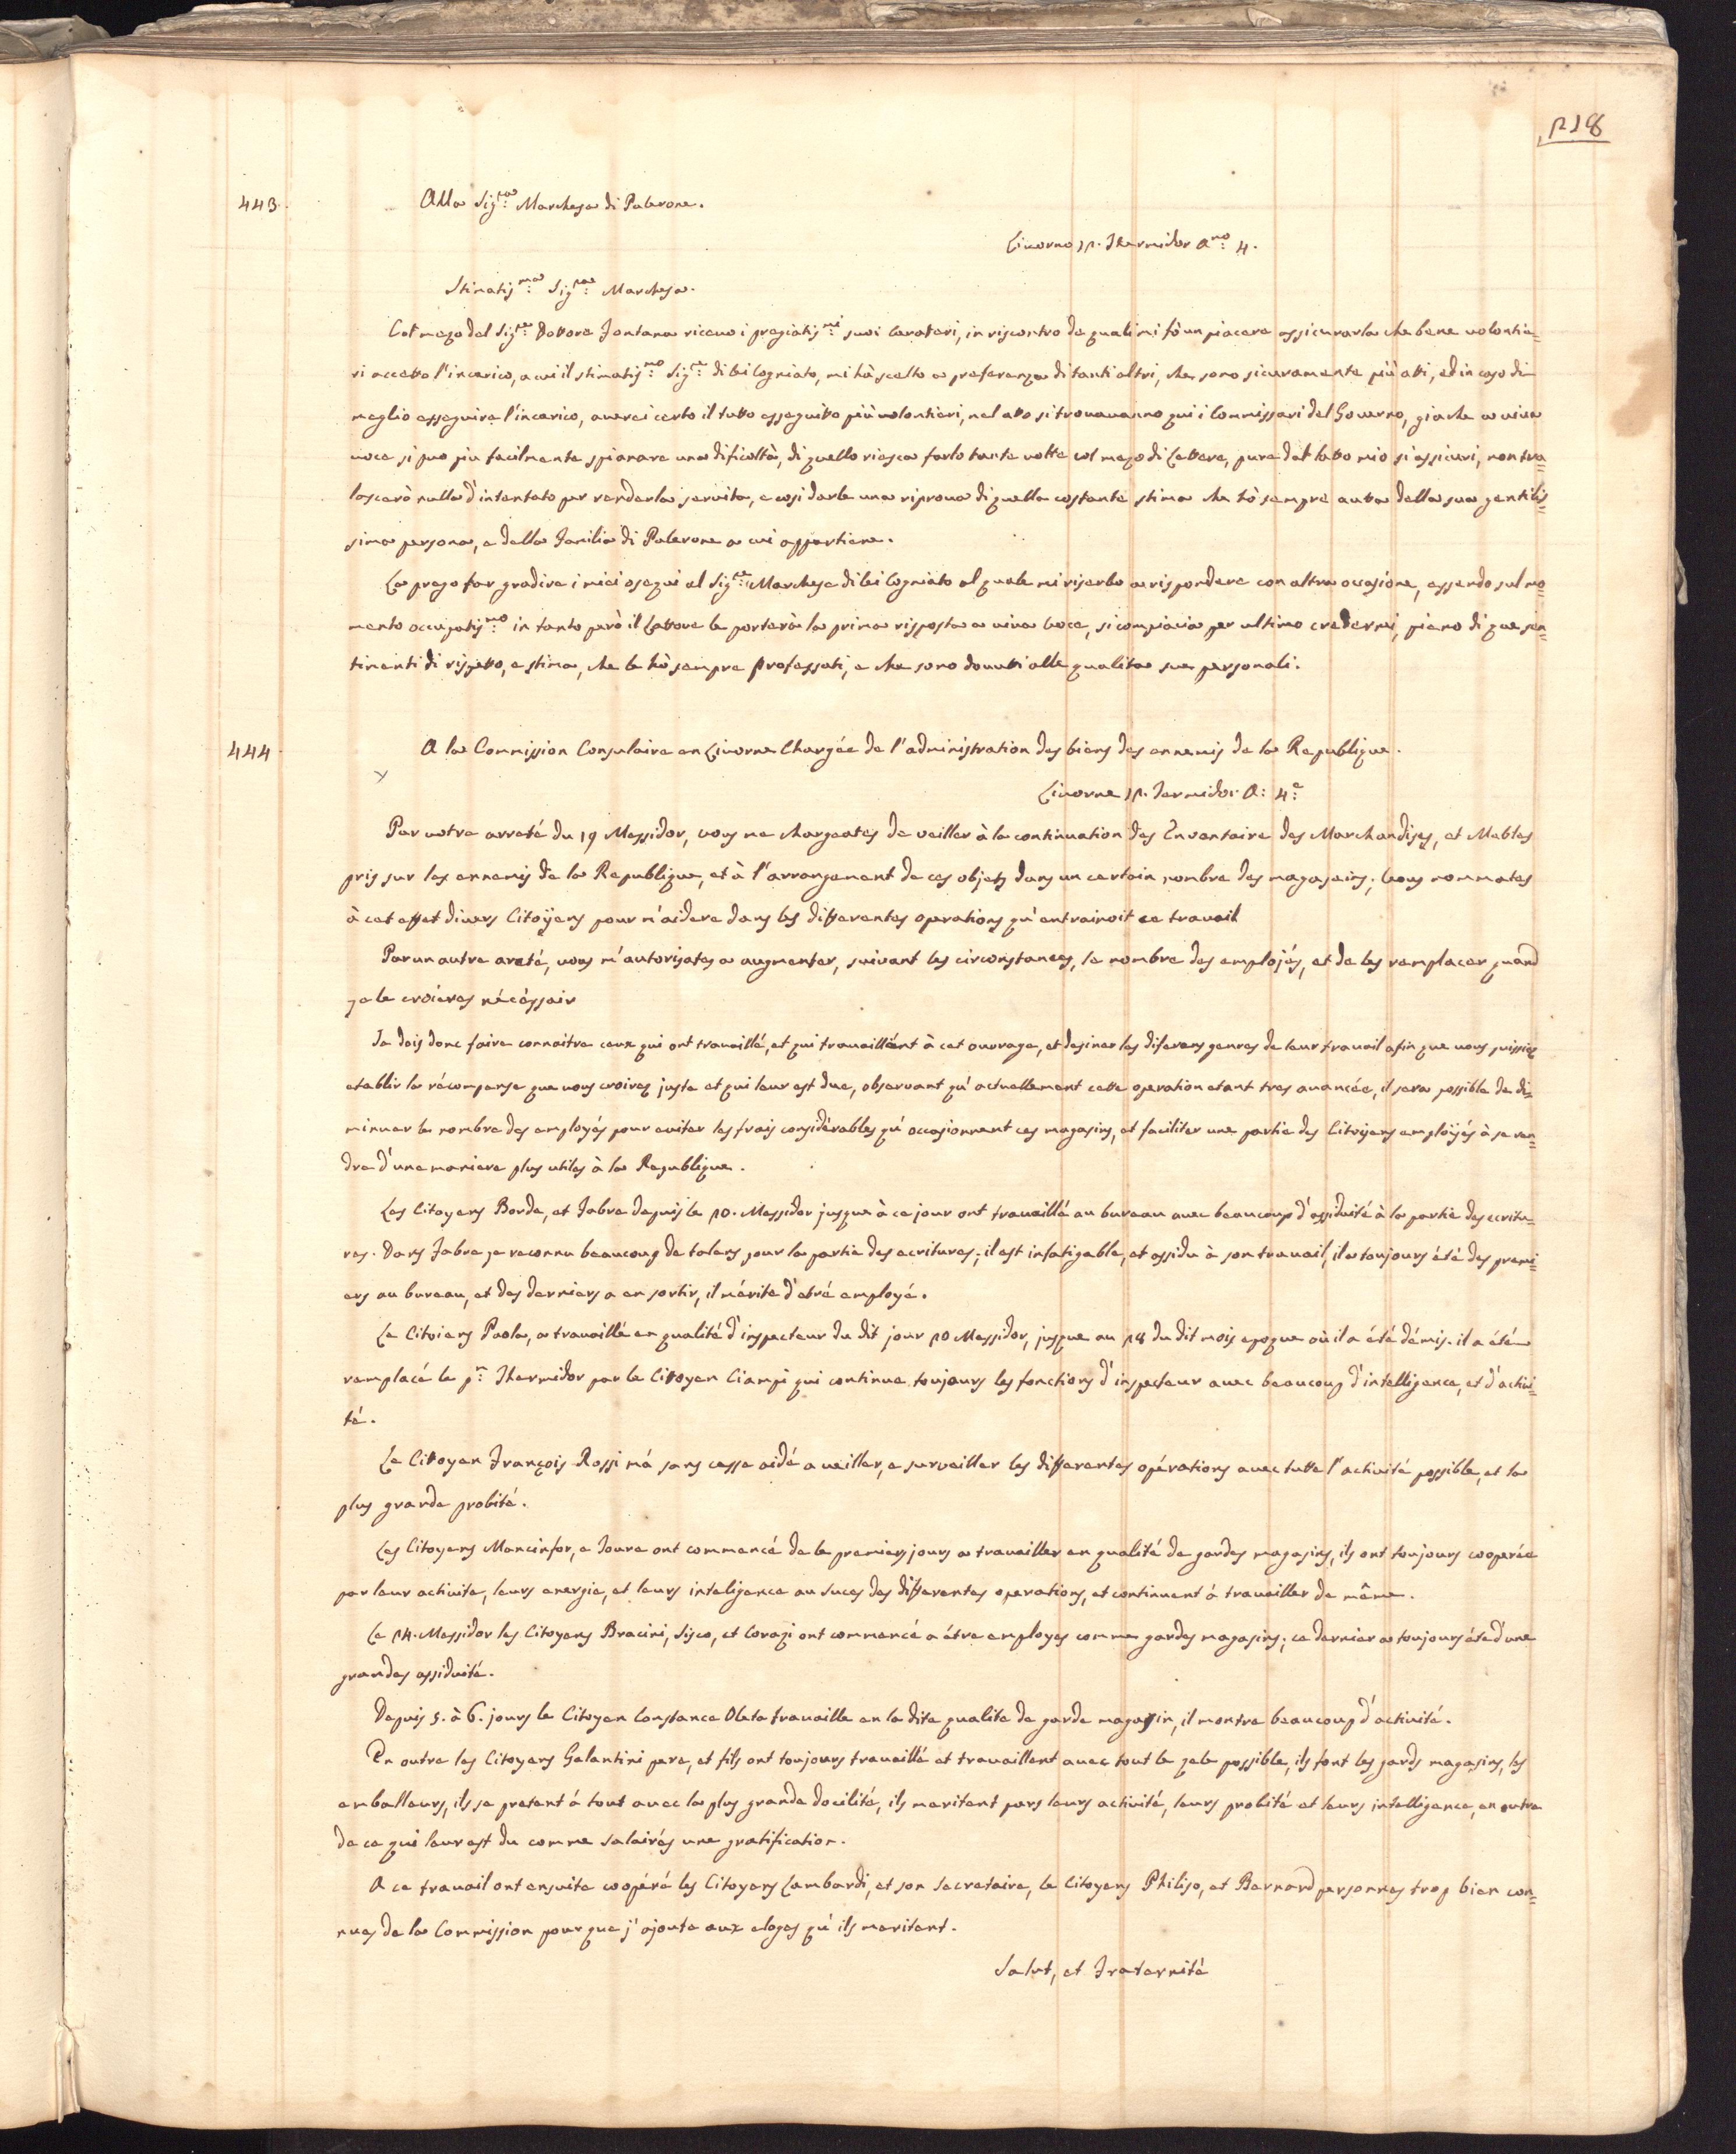 218
443.
Alla Sig:ra Marchesa di Palerone.
Livorno 12. Thermidor Ano: 4.
Stimatis:ma Sig:ra Marchesa.
Col mezo del Sig:re Dottore Fontana ricevo i pregiatis:mi suoi caratteri, in riscontro de quali mi fò un piacere assicurarla che bene volontie=
ri accetto l'incarico, a cui il stimatis:mo Sig:re di lei Cogniato, mi hà scelto a preferenza di tanti altri, che sono sicuramente più atti, ed in caso di
meglio esseguire l'incarico, averei certo il tutto esseguito più volontieri, nel atto si trovavanno qui i Commissari del Governo, giache a viva
voce si puo piu facilmente spianare una dificoltà, di quello riesca farlo tante volte col mezo di Lettere, pure dal canto mio si assicuri, non tra=
lascerò nulla d'intentato per renderla servita, e cosi darle una riprova di quella costante stima che hò sempre auta della sua gentilis=
sima persona, e della Familia di Palerone a cui appartiene.
La prego far gradire i miei osequi al Sig:re Marchese di lei Cogniato al quale mi riserbo a rispondere con altra occasione, essendo sul mo=
mento occupatis:mo in tanto però il Latore le porterà la prima risposta a viva voce, si compiacia per ultimo credermi, pieno di que sen=
timenti di rispetto, e stima, che le hò sempre professati, e che sono dovuti alle qualita sue personali.
444
A la Commission Consulaire en Livorne Chargée de l'administration des biens des ennemis de la Republique.
Livorne 12. Termidor A: 4:e
Par votre arreté du 19 Messidor, vous me chargeates de veiller à la continuation des Enventaire des Marchandises, et Mebles
pris sur les ennemis de la Republique, et à l'arrangement de ces objets dans un certain nombre des magaseins, vous nommates
à cet effet divers Citoÿens pour m'aidere dans les differentes operations qu'entrainoit ce travail
Par un autre areté, vous m'autorisates a augmenter, suivant les circonstances, le nombre des emplojés, et de les remplacer quand
je le croieres nécéssair
Je dois donc faire connaitre ceux qui ont travaillé, et qui travaillént à cet ouvrage, et desiner les diferens genres de leur travail afin que vous puissiez
etablir la récompense que vous croirez juste et qui leur est due, observant qu'actuellement cette operation etant tres avancée, il sera possible de di=
minuer le nombre des employés pour eviter les frais considérables qu'occasionnent ces magasins, et faciliter une partie des Citoijens emploijés à se ren=
dre d'une maniere plus utiles à la Republique.
Les Citoyens Borde, et Fabre depuis le 20. Messidor jusque à ce jour ont travaillé au bureau avec beaucoup d'assiduité à la partie des ecritu=
res. Dans Fabre je reconnu beaucoup de talens pour la partie des ecritures; il est infatigable, et assidu à son travail, il a toujours été des premi=
ers au bureau, et des derniers a en sortir, il mérite d'etré employé.
Le Citoiens Paola, a travaillé en qualité d'inspecteur du dit jour 20 Messidor, jusque au 28 du dit mois epoque où il a été démis. il a été
remplacé le p:r Thermidor par le Citoyen Ciampi qui continue toujours les fonctions d'inspecteur avec beaucoup d'intelligence, et d'activi=
té.
Le Citoyen François Rossi má sans cesse aidé a veiller, e surveiller les differentes opérations avec tutte l'activité possible, et la
plus grande probité.
Les Citoyens Mancinfor, e Joure ont commencé de le premiers jours a travailler en qualité de gardes magasins, ils ont toujours cooperée
par leur activite, leurs energie, et leurs inteligence au suces des differentes operations, et continuent á travailler de même.
Le 24. Messidor les Citoyens Bracini, Sisco, et Corazi ont commencé a étre employes comme gardes magasins; ce dernier a toujours éte d'une
grandes assiduité.
Depuis 5. à 6. jours le Citoyen Constance Oleta travaille en la dite qualite de garde magasin, il montre beaucoup d'activité.
En outre les Citoyens Galantini pere, et fils ont toujours travaillé et travaillent avec tout le zele possible, ils font les gards magasins, les
emballeurs, ils se pretent á tout avec la plus grande docilité, ils meritent pars leurs activité, leurs probité et leurs intelligence, en outre
de ce qui leur est du comme salairés une gratification.
A ce travail ont ensuite coopéré les Citoyens Lambardi, et son secretaire, le Citoyens Philiso, et Bernard personnes trop bien con=
nues de la Commission pour que j'ajoute aux eloges qu'ils meritent.
Salut, et Fraternité